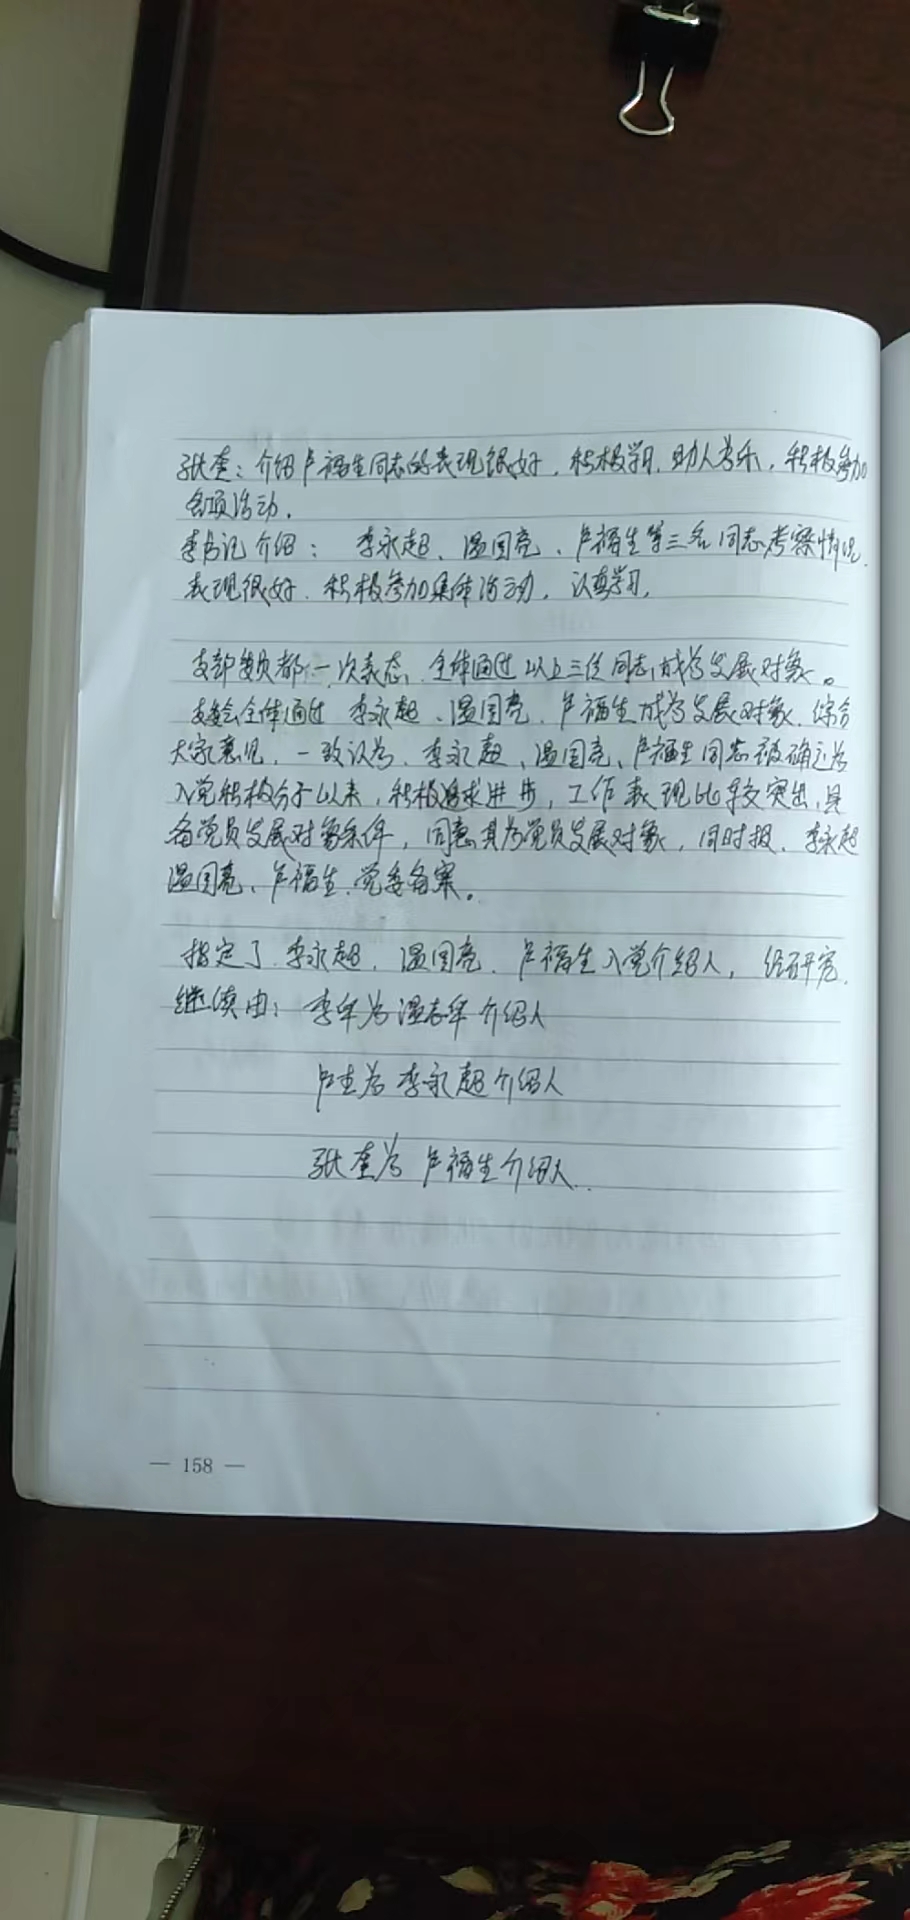 张奎：介绍卢福生同志的表现很好，积极学习，助人为乐，积极参加
各项活动.
李书记介绍： 李永超、温国亮、卢福生等三名同志考察情况.
表现很好. 积极参加集体活动，认真学习.
支部委员都一次表态，全体通过以上三位同志成为发展对象。
支委会全体通过 李永超、温国亮、卢福生成为发展对象. 综合
大家意见，一致认为，李永超、温国亮、卢福生同志被确定为
入党积极分子以来，积极追求进步，工作表现比较突出，具
备党员发展对象条件，同意其为党员发展对象，同时报、李永超
温国亮、卢福生、党委备案。
指定了 李永超. 温国亮. 卢福生入党介绍人， 经研究.
继续由：李军为温国亮介绍人
为李永超介绍人
张奎为 卢福生介绍人.
— 158 —